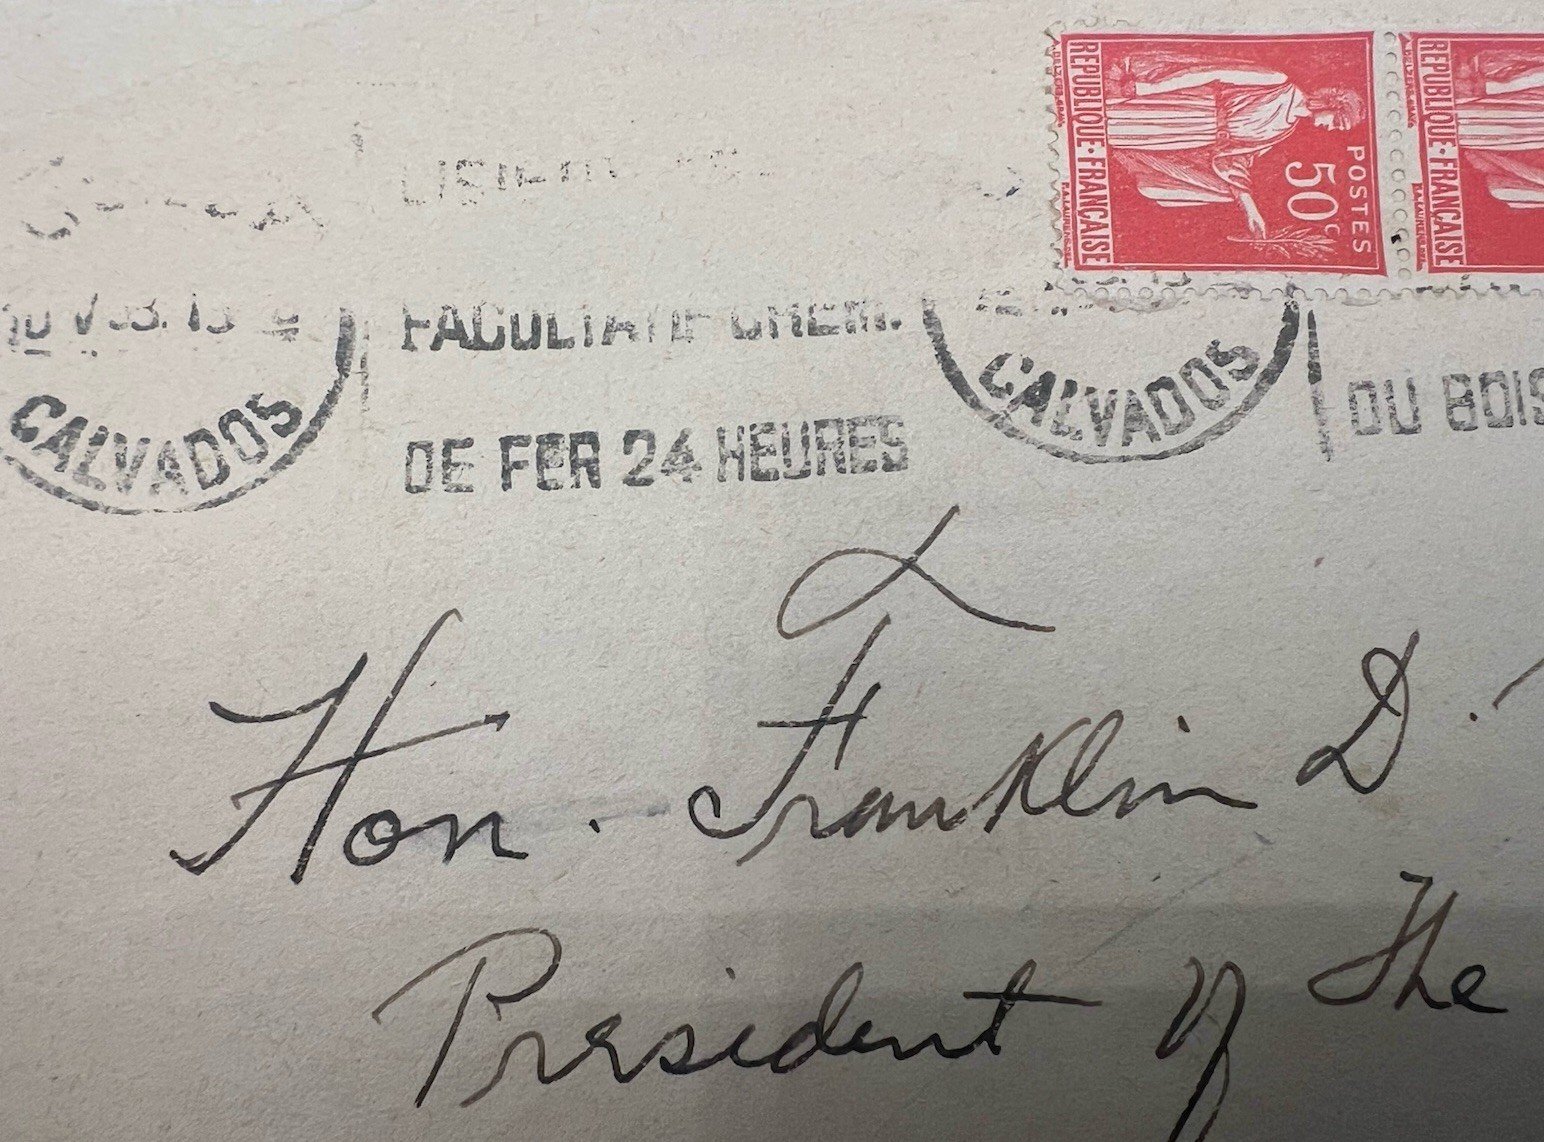 REPUBLIQUE·FRANÇAISE
POSTES
50c
REPUBLIQUE·FRANÇAISE
FACULTATIF CHEM.
CALVADOS
DE FER 24 HEURES
CALVADOS
DU BOIS
Hon. Franklin D.
President of The